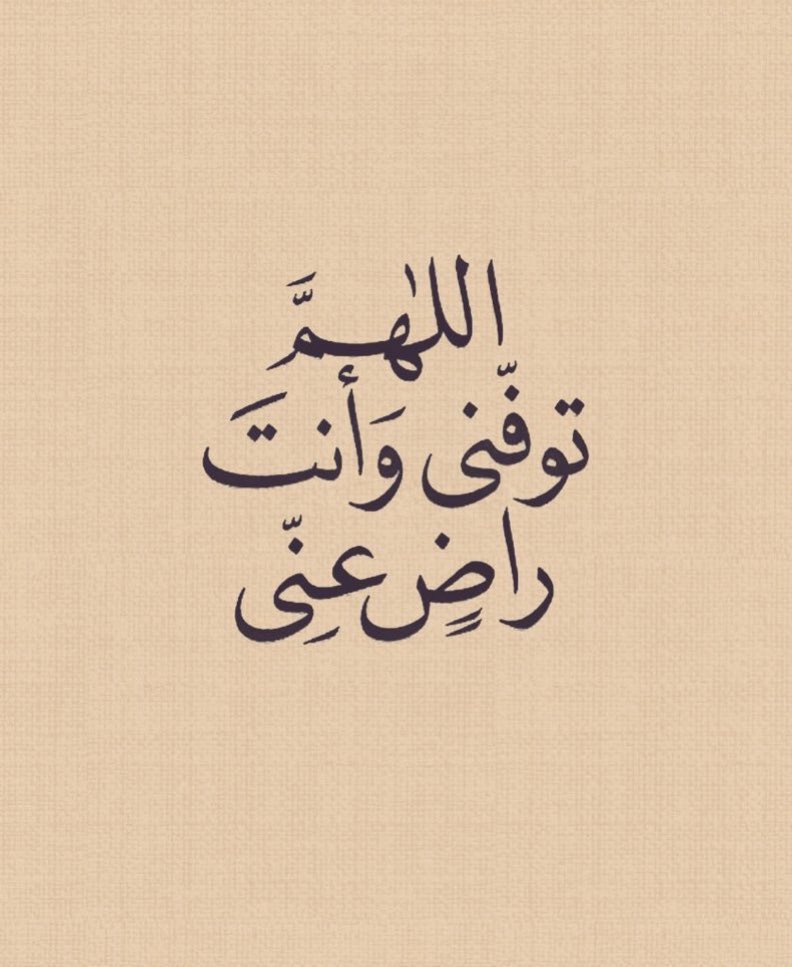 اللهمَّ
توفّنى وَأنتَ
راضٍ عنِّى